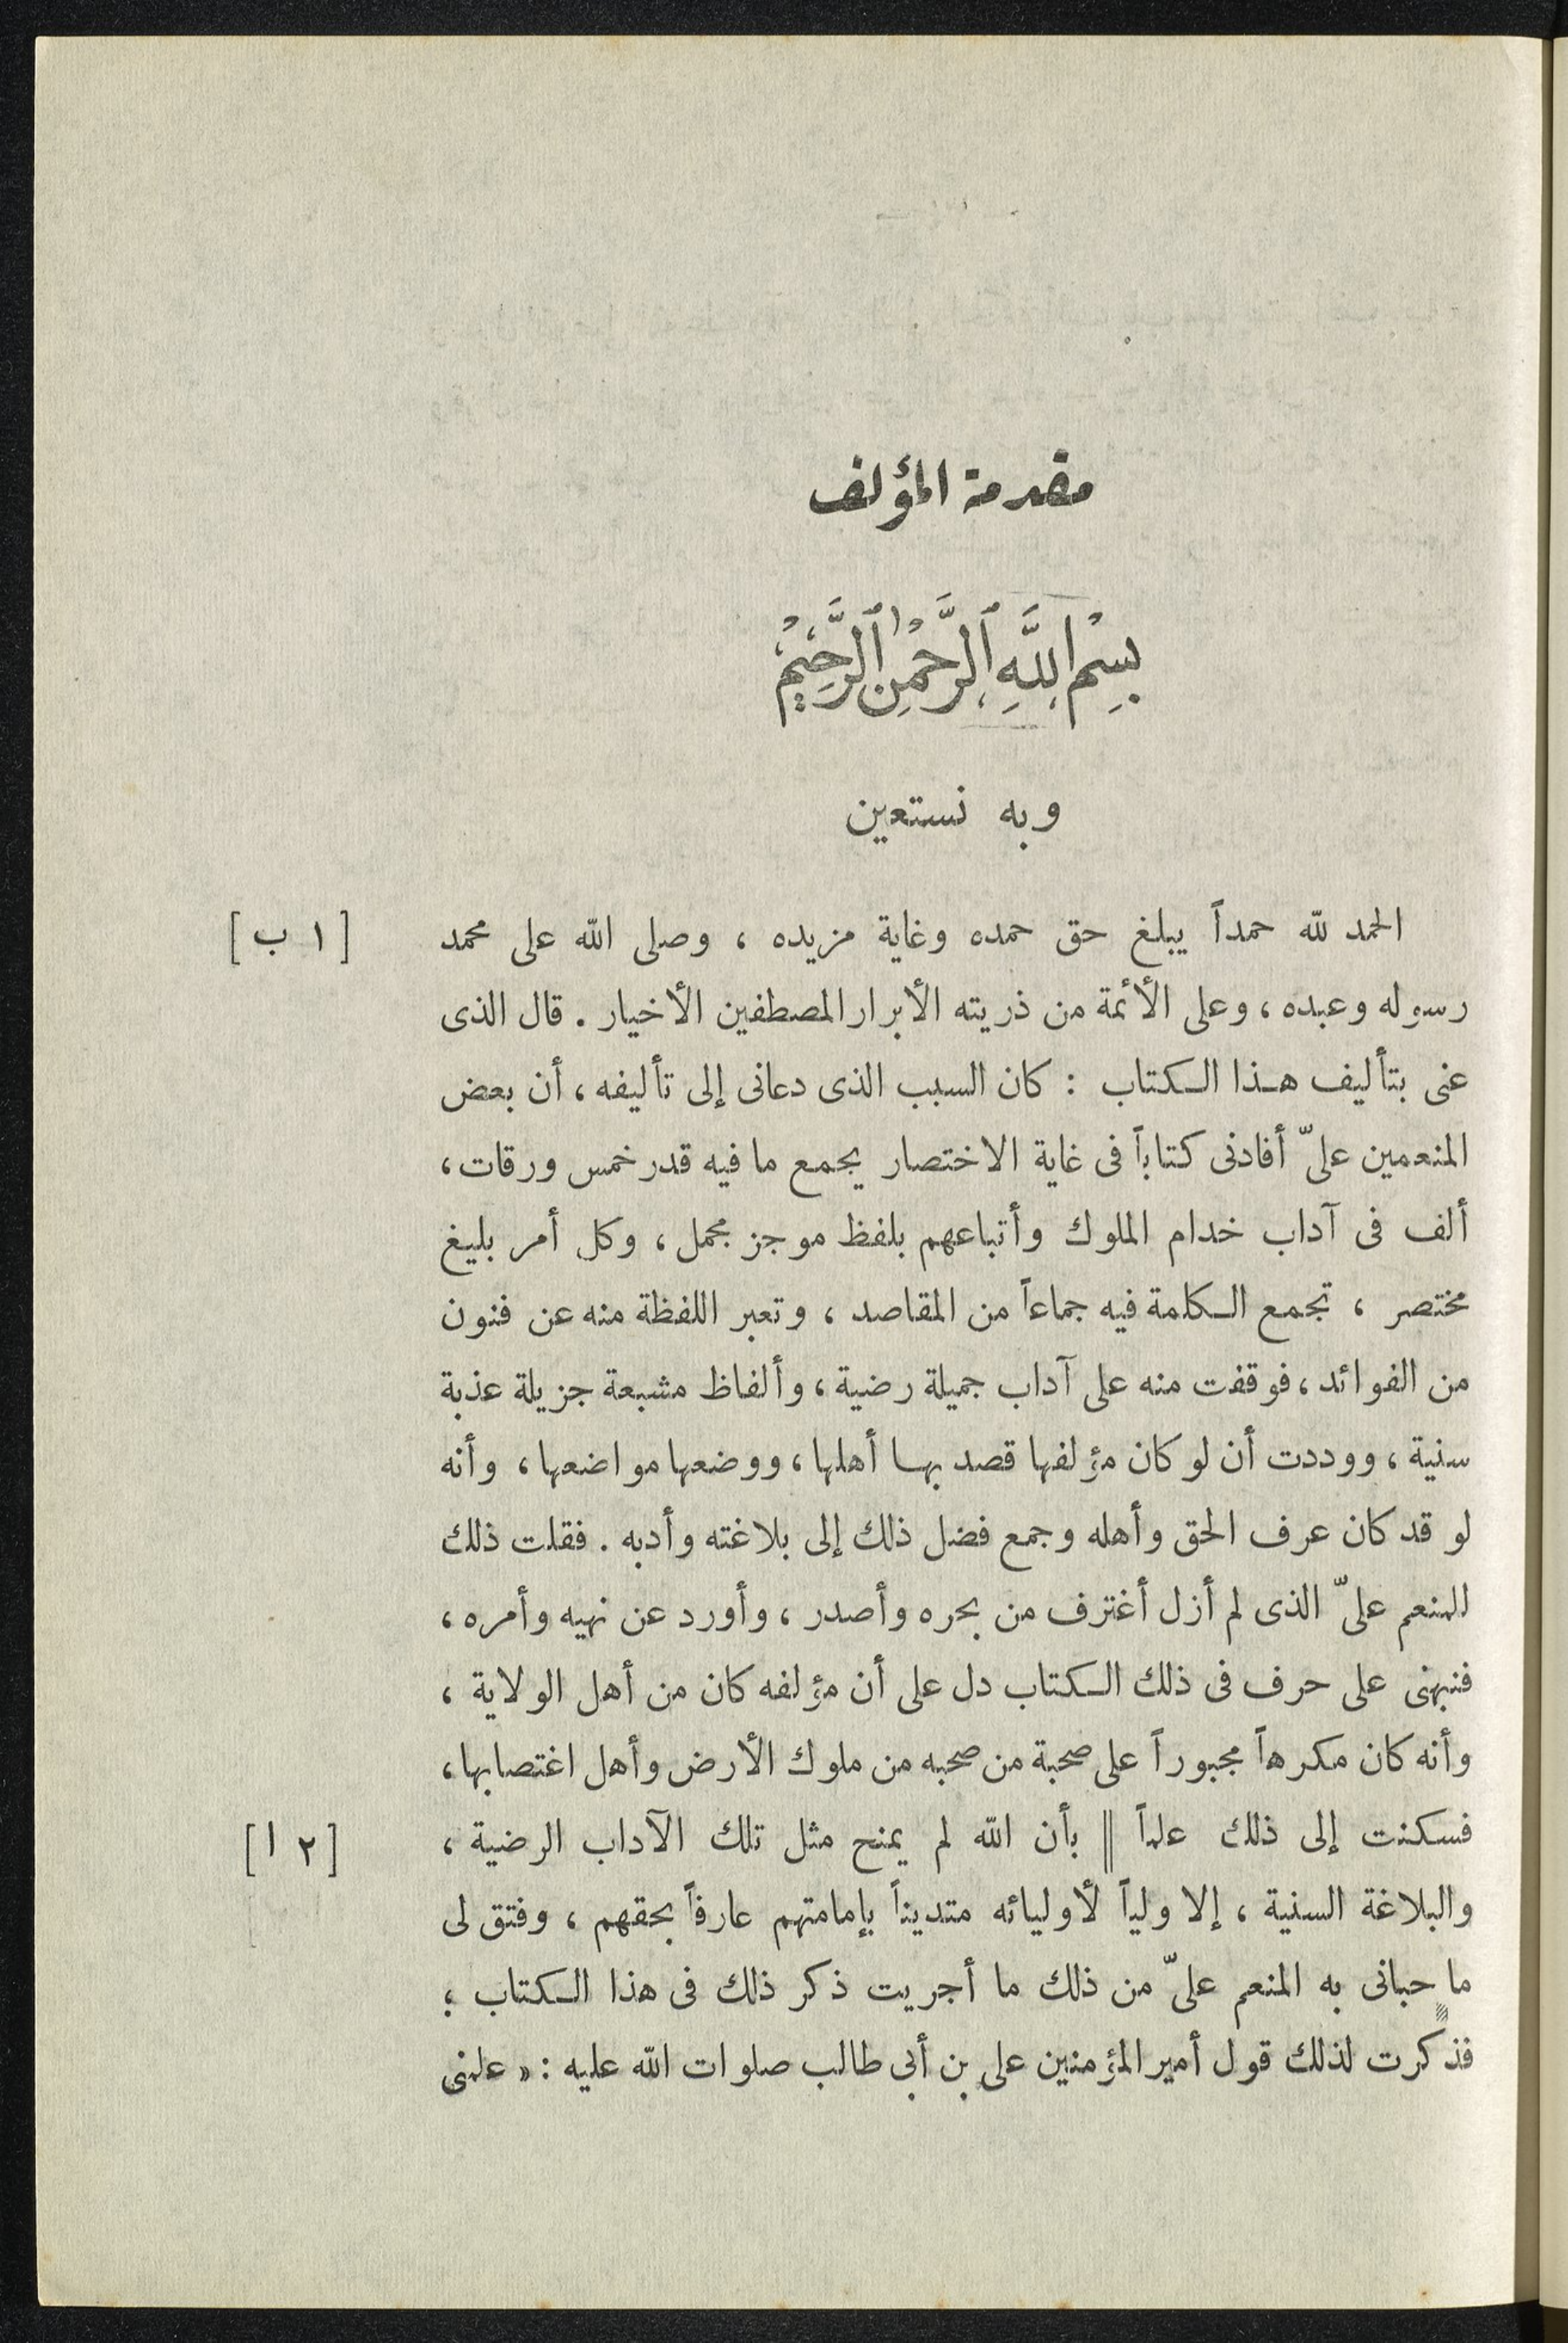 مقدمة المؤلف
بِسْمِ اللَّهِ ٱلرَّحْمٰنِ ٱلرَّحِيْمِ
وبه نستعين
الحمد لله حمداً يبلغ حق حمده وغاية مزيده ، وصلى الله على محمد [ ١ ب ]
رسوله وعبده ، وعلى الأئمة من ذريته الأبرار المصطفين الأخيار . قال الذى
عنى بتأليف هذا الكتاب : كان السبب الذى دعانى إلى تأليفه ، أن بعض
المنعمين علىّ أفادنى كتاباً فى غاية الاختصار يجمع ما فيه قدر خمس ورقات ،
ألف فى آداب خدام الملوك وأتباعهم بلفظ موجز مجمل ، وكل أمر بليغ
مختصر ، تجمع الكلمة فيه جماعاً من المقاصد ، وتعبر اللفظة منه عن فنون
من الفوائد ، فوقفت منه على آداب جميلة رضية ، وألفاظ مشبعة جزيلة عذبة
سنية ، ووددت أن لو كان مؤلفها قصد بها أهلها ، ووضعها مواضعها ، وأنه
لو قد كان عرف الحق وأهله وجمع فضل ذلك إلى بلاغته وأدبه . فقلت ذلك
للمنعم علىّ الذى لم أزل أغترف من بحره وأصدر ، وأورد عن نهيه وأمره ،
فنبهنى على حرف فى ذلك الكتاب دل على أن مؤلفه كان من أهل الولاية ،
وأنه كان مكرهاً مجبوراً على صحبة من صحبه من ملوك الأرض وأهل اغتصابها ،
فسكنت إلى ذلك علماً || بأن الله لم يمنح مثل تلك الآداب الرضية ، [ ٢ ا ]
والبلاغة السنية ، إلا ولياً لأوليائه متديناً بإمامتهم عارفاً بحقهم ، وفتق لى
ما حبانى به المنعم علىّ من ذلك ما أجريت ذكر ذلك فى هذا الكتاب ؛
فذكرت لذلك قول أمير المؤمنين على بن أبى طالب صلوات الله عليه : « علمنى